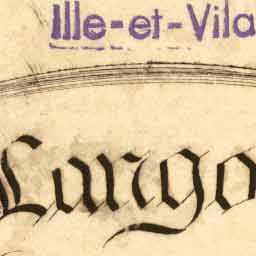 Ille-et-Vila
Lango